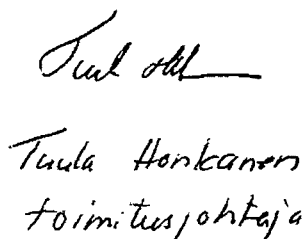 Tuula Honkanen
toimitusjohtaja